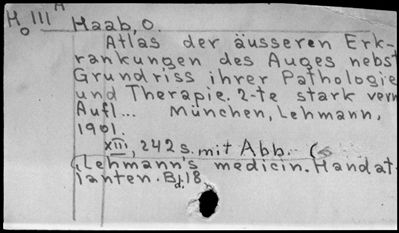 H₀ III A
Haab, O.
Atlas der äusseren Erk-
rankungen des Auges nebst
Grundriss ihrer Pathologie
und Therapie. 2-te stark verm
Aufl... München, Lehmann,
1901.
XIII, 242 s. mit Abb. (
(Lehmann's medicin. Handat-
lanten. Bd. 18.